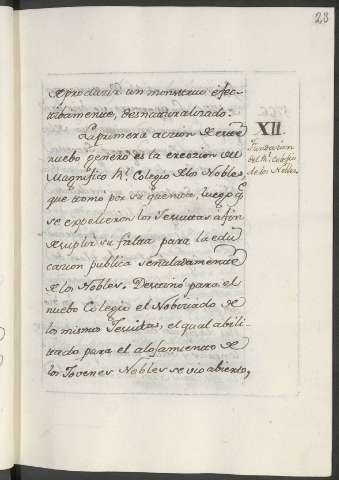 23
de producir un monstruo efec-
tibamente, desnaturalizado.
La primera accion de este
nuebo genero es la creazion del
Magnifico Rl. Colegio de los Nobles,
que tomó por su quenta, luego qe
se expelieron los Jesuitas a fin
de suplir su falta para la edu
cacion publica señaladamente
de los Nobles. Destinó para el
nuebo Colegio el Nobiciado de
los mismos Jesuitas, el qual abili
tado para el alojamiento de
los Jovenes Nobles se vio abierto,
XII
Fundacion
del Rl. Colegio
de los Nobles